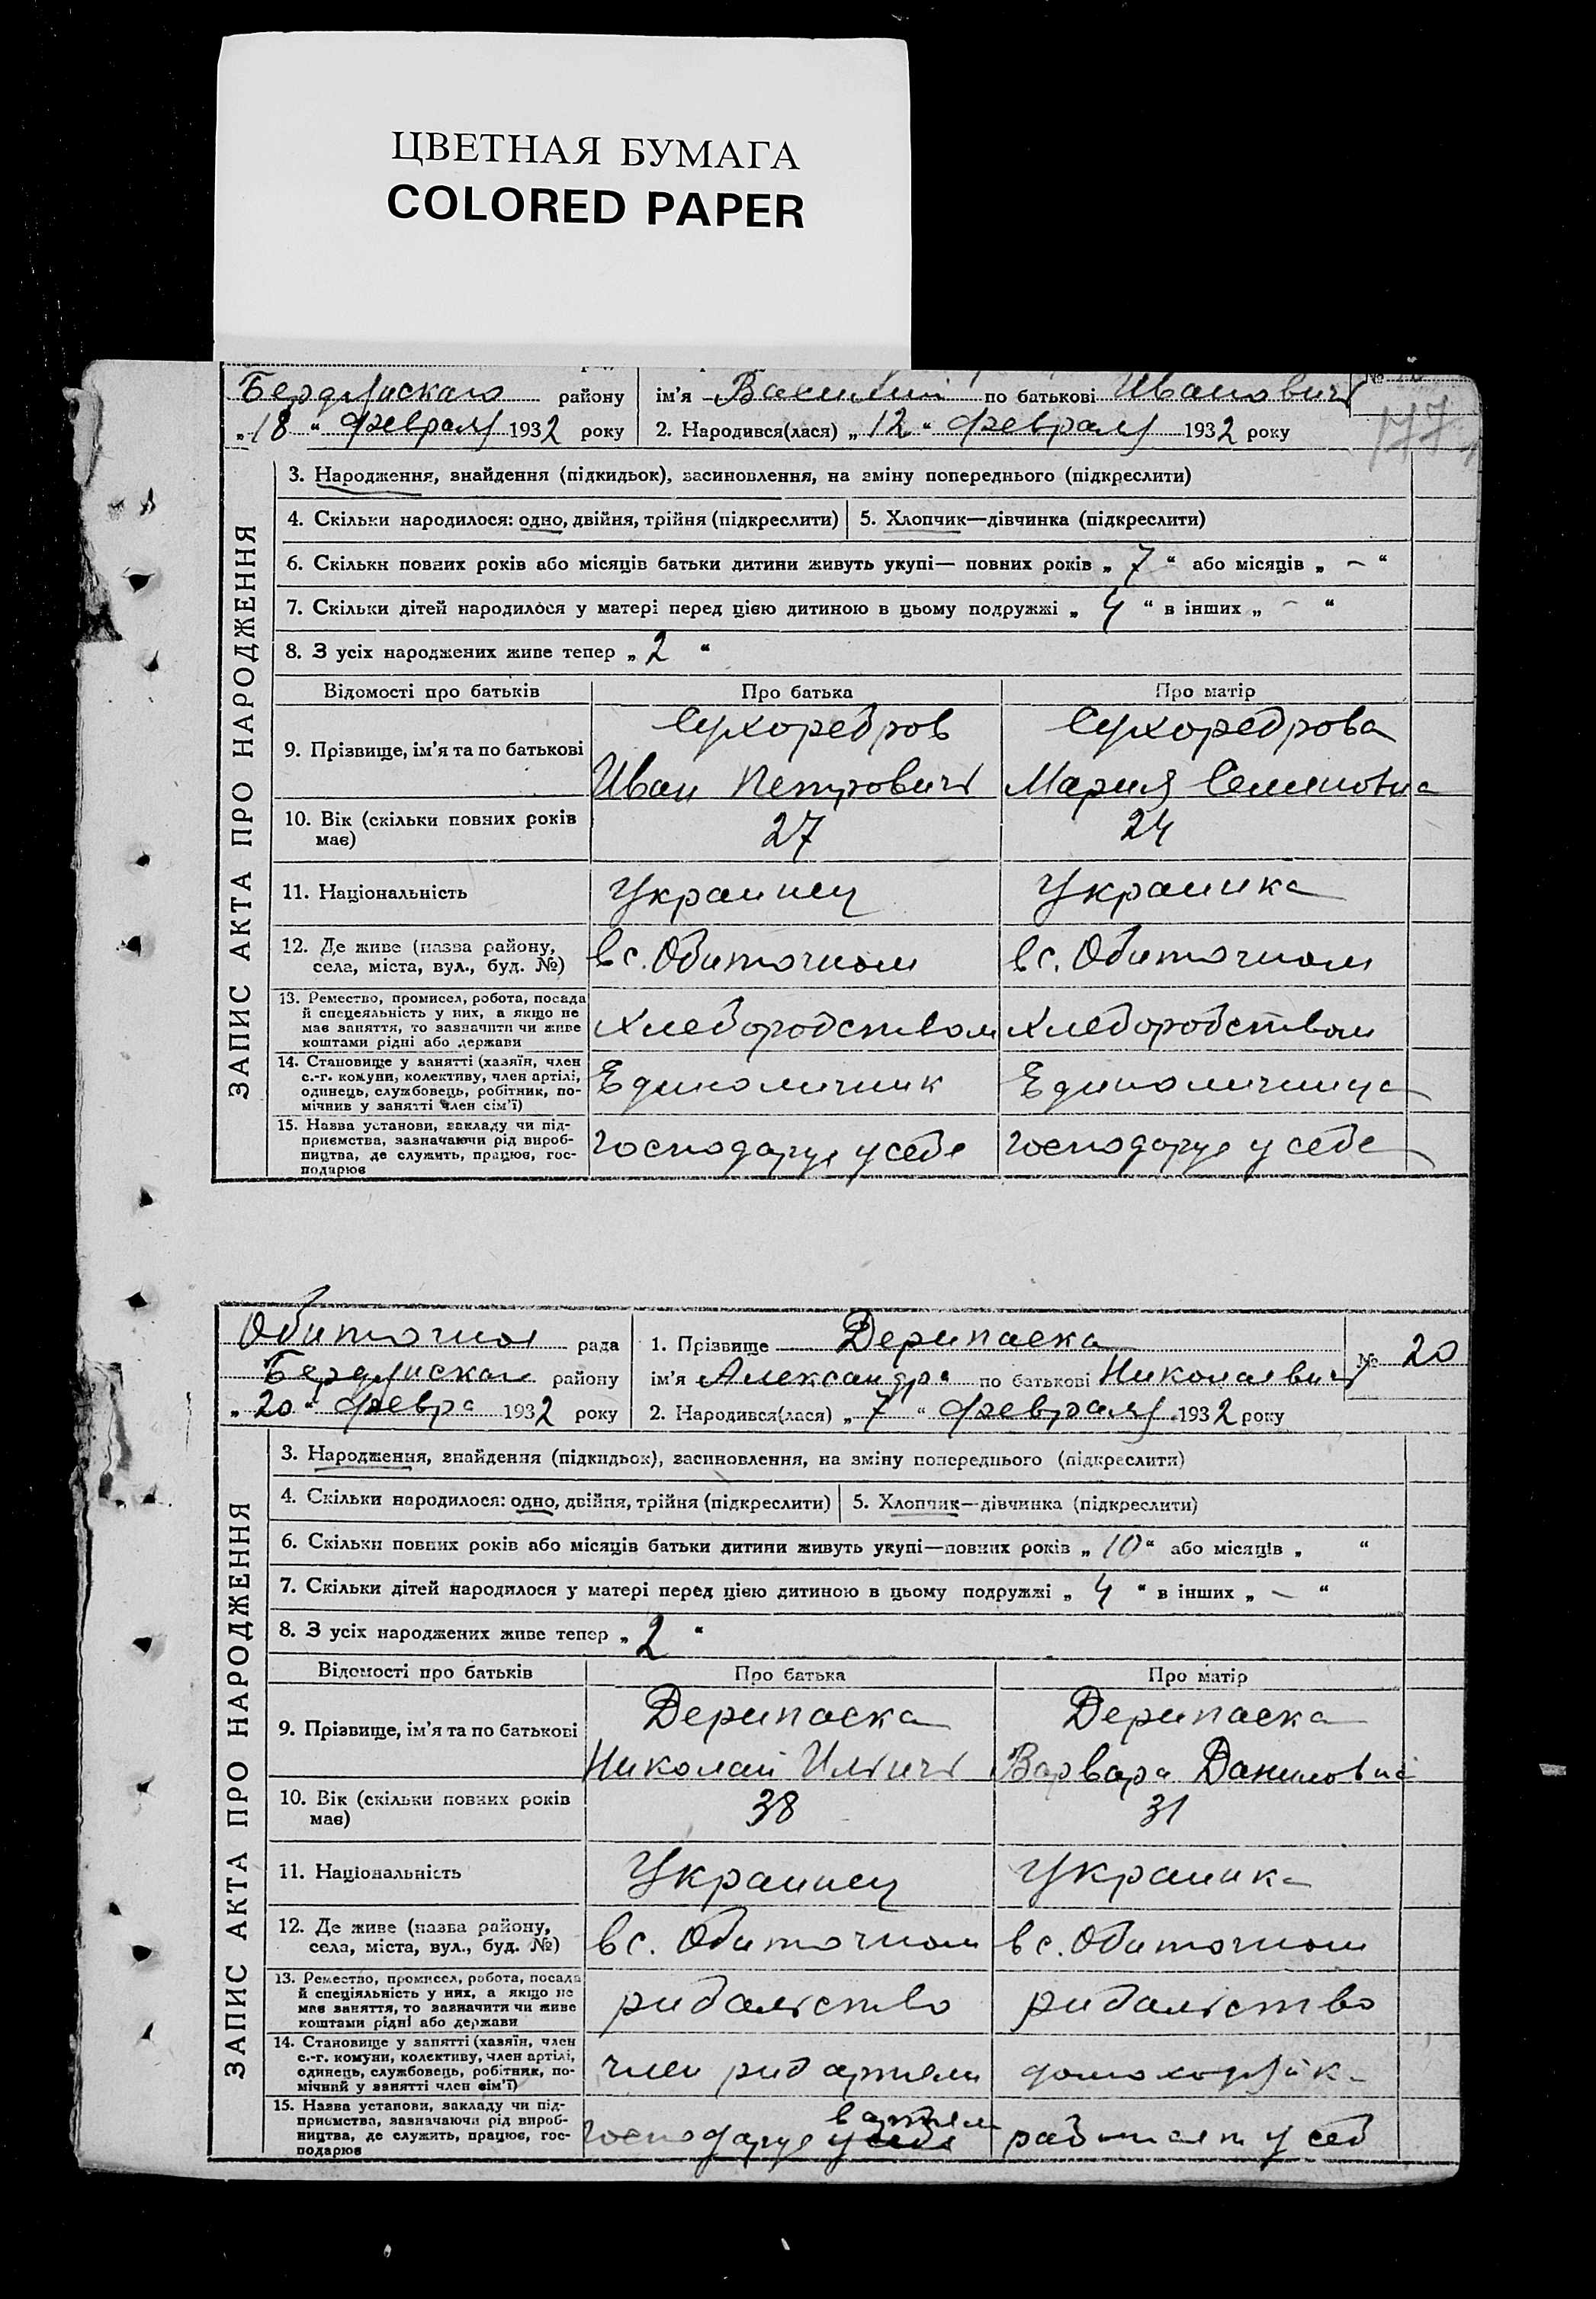 ЦВЕТНАЯ БУМАГА
COLORED PAPER
Бердянскаго району
„18“ февраля 1932 року
ім'я Василий по батькові Иванович
2. Народився(лася) „12“ февраля 1932 року
№
177
ЗАПИС АКТА ПРО НАРОДЖЕННЯ
3. Народження, знайдення (підкидьок), засиновлення, на зміну попереднього (підкреслити)
4. Скільки народилося: одно, двійня, трійня (підкреслити) 5. Хлопчик—дівчинка (підкреслити)
6. Скільки повних років або місяців батьки дитини живуть укупі— повних років „7“ або місяців „–“
7. Скільки дітей народилося у матері перед цією дитиною в цьому подружжі „4“ в інших „–“
8. З усіх народжених живе тепер „2“
Відомості про батьків Про батька Про матір
9. Прізвище, ім'я та по батькові
Сухоребров Сухореброва
Иван Петрович Мария Семеновна
10. Вік (скільки повних років має) 27 24
11. Національність Украинец Украинка
12. Де живе (назва району, села, міста, вул., буд. №) в с. Обиточном в с. Обиточном
13. Ремество, промисел, робота, посада й спецеяльність у них, а якщо не має заняття, то зазначити чи живе коштами рідні або держави
Хлебородством Хлебородством
14. Становище у занятті (хазяїн, член с.-г. комуни, колективу, член артілі, одинець, службовець, робітник, помічник у занятті член сім'ї)
Единоличник Единоличница
15. Назва установи, закладу чи підприємства, зазначаючи рід виробництва, де служить, працює, господарює
господарує у себе господарує у себе
Обиточная рада
Бердянская району
„20“ февра 1932 року
1. Прізвище Дерипаска
ім'я Александра по батькові Николаевич
2. Народився(лася) „7“ февраля 1932 року
№ 20
ЗАПИС АКТА ПРО НАРОДЖЕННЯ
3. Народження, знайдення (підкидьок), засиновлення, на зміну попереднього (підкреслити)
4. Скільки народилося: одно, двійня, трійня (підкреслити) 5. Хлопчик—дівчинка (підкреслити)
6. Скільки повних років або місяців батьки дитини живуть укупі—повних років „10“ або місяців „ “
7. Скільки дітей народилося у матері перед цією дитиною в цьому подружжі „4“ в інших „–“
8. З усіх народжених живе тепер „2“
Відомості про батьків Про батька Про матір
9. Прізвище, ім'я та по батькові
Дерипаска Дерипаска
Николай Ильич Варвара Даниловна
10. Вік (скільки повних років має) 38 31
11. Національність Украинец Украинка
12. Де живе (назва району, села, міста, вул., буд. №) в с. Обиточном в с. Обиточном
13. Ремество, промисел, робота, посада й спеціяльність у них, а якщо не має заняття, то зазначити чи живе коштами рідні або держави
рибальство рибальство
14. Становище у занятті (хазяїн, член с.-г. комуни, колективу, член артілі, одинець, службовець, робітник, помічний у занятті член сім'ї)
член риб артели домохозяйк
15. Назва установи, закладу чи підприємства, зазначаючи рід виробництва, де служить, працює, господарює
господарує у себе в артели у себ